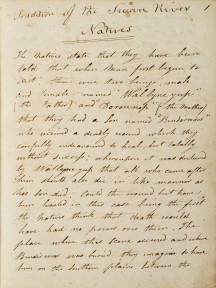 Tradition of the Swan River 1
Natives
The Natives state that they have been
told that when Man first began to
exist there were two beings, male
and female named "Wallynyup"
(the Father) and Doronnop (the Mother)
that they had a son named "Bindinwor"
who received a deadly wound which they
carefully endeavoured to heal, but totally
without success; whereupon it was declared
by Wallynyup that all who came after
him should also die in like manner as
his son died. Could the wound but have
been healed in this case being the first
the Natives think that death would
have had no power over them. The
place where this scene occurred and where
Bindinwor was buried they imagine to have
been on the southern plains between the